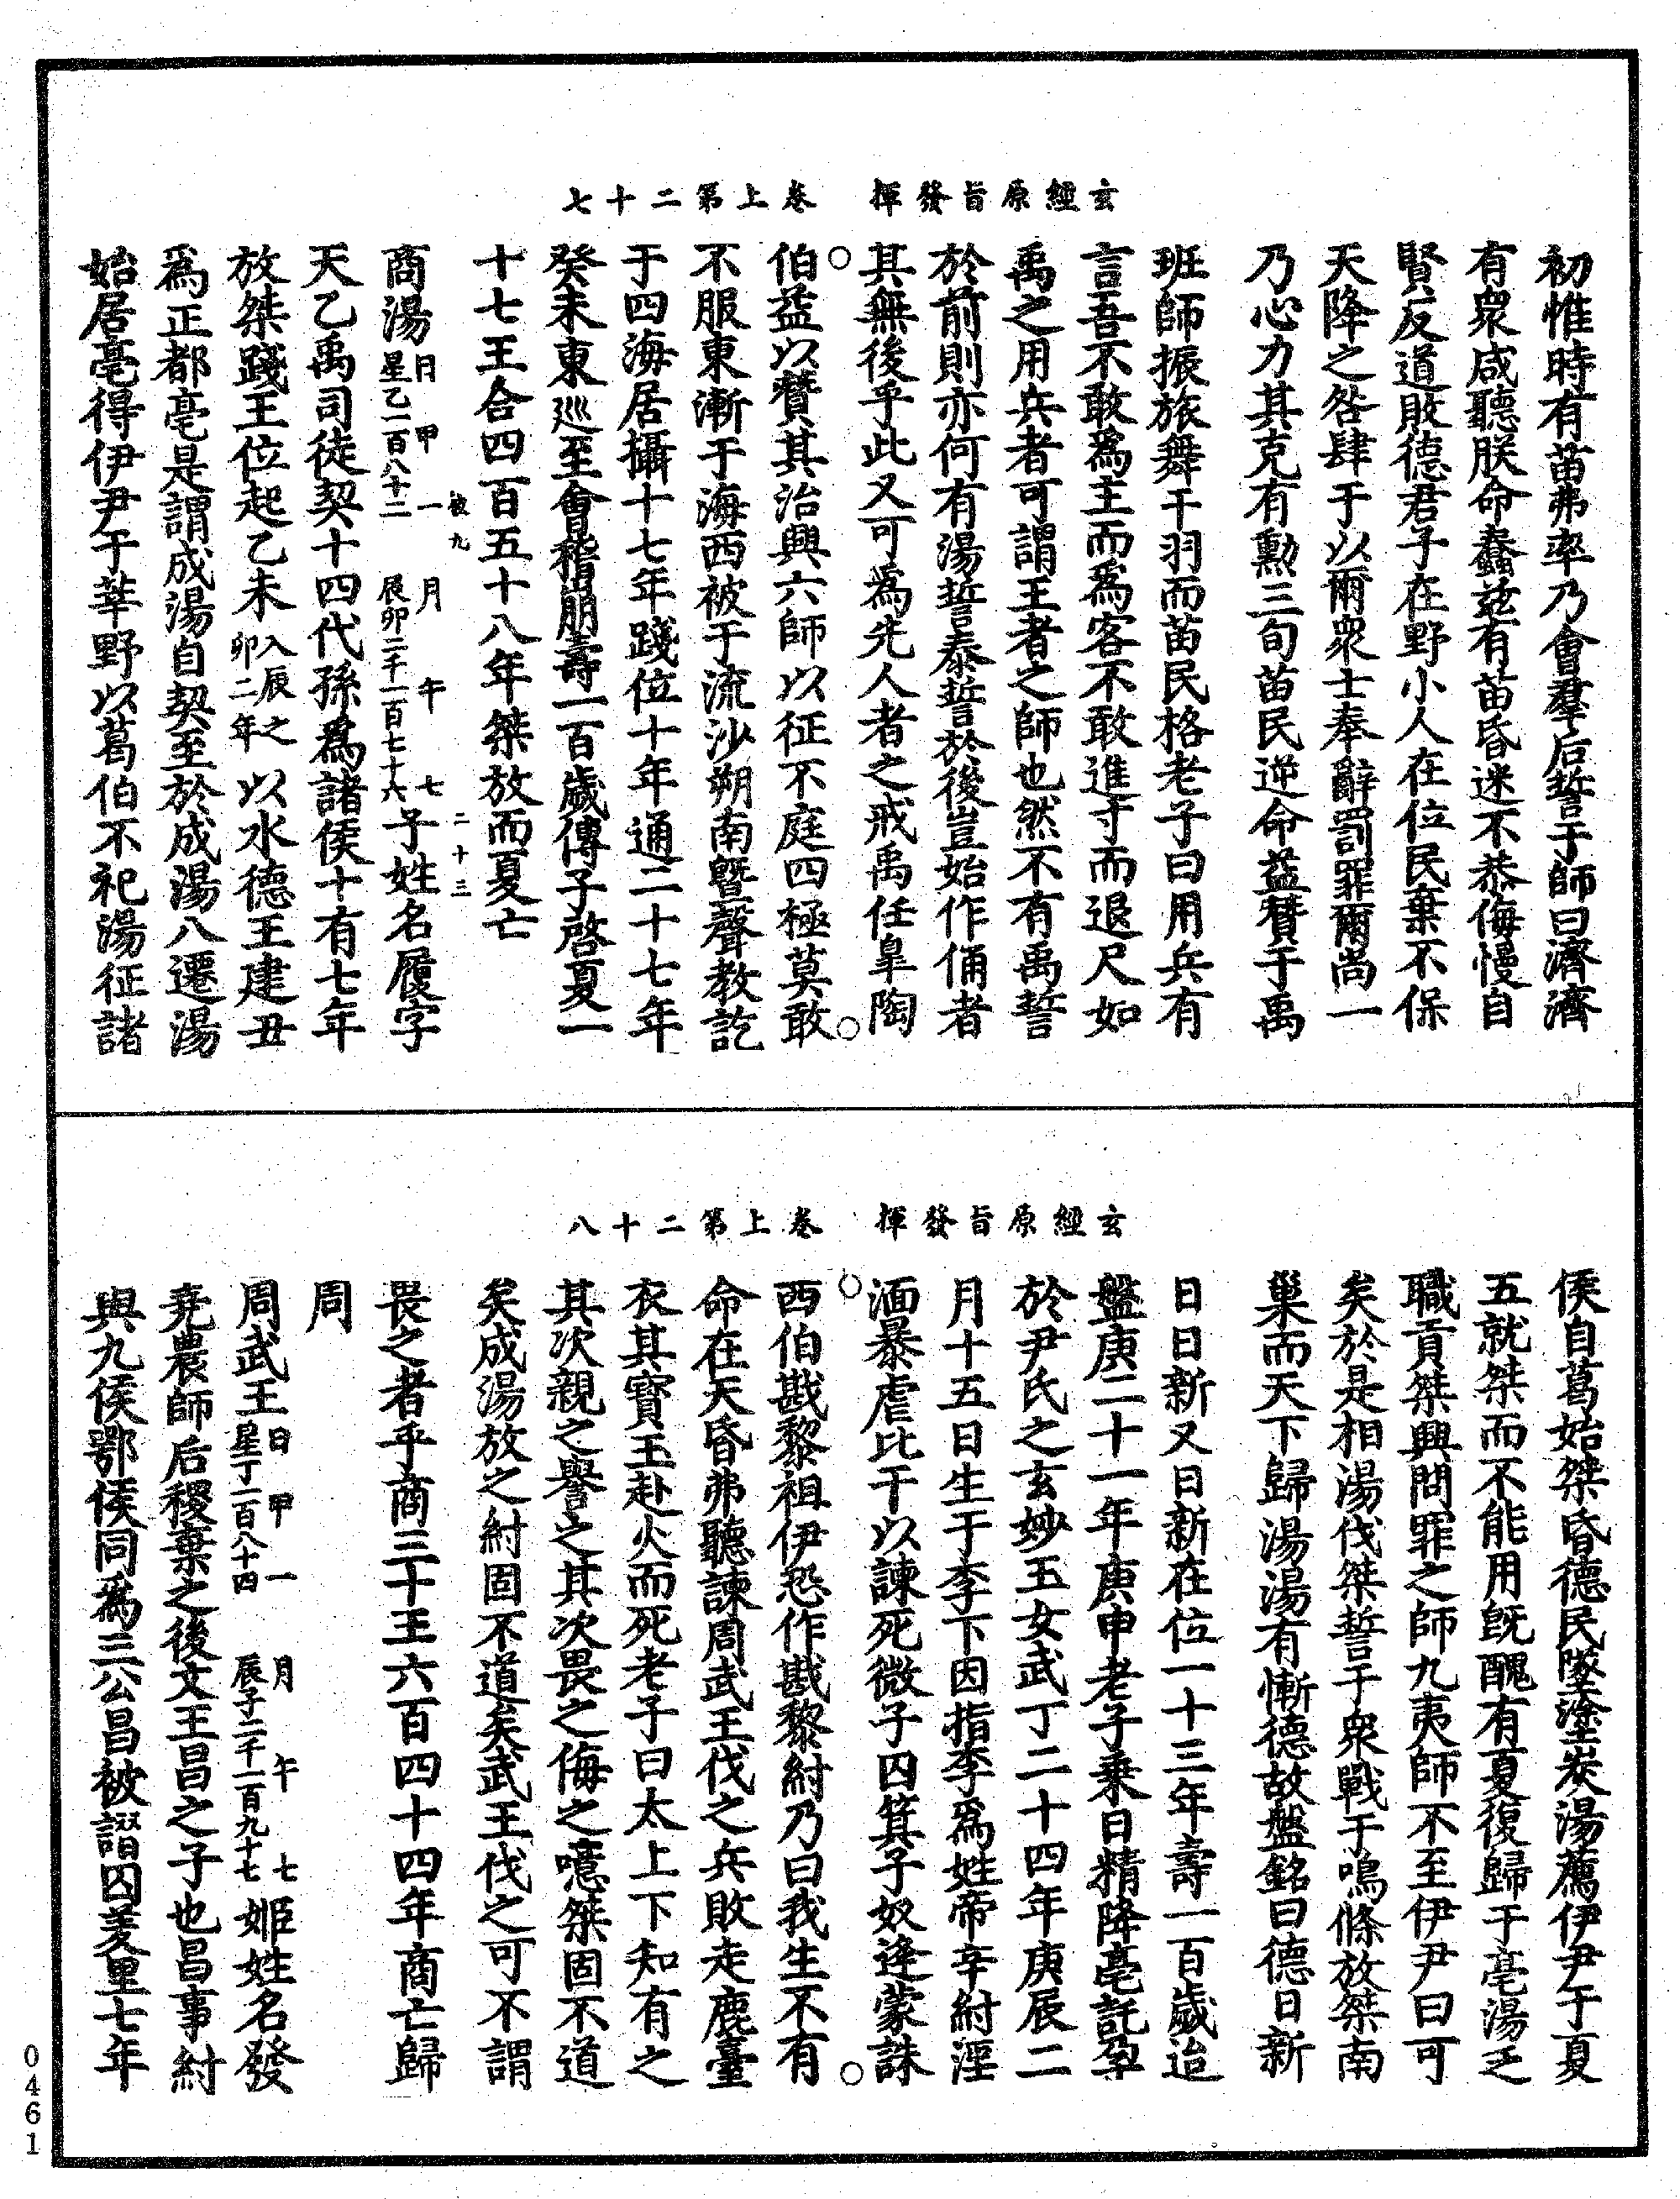 玄經原旨發揮　卷上第二十七
初惟時有苗弗率乃會羣后誓于師曰濟濟
有衆咸聽朕命蠢兹有苗昏迷不恭侮慢自
賢反道敗德君子在野小人在位民棄不保
天降之咎肆予以爾衆士奉辭罰罪爾尚一
乃心力其克有勲三旬苗民逆命益賛于禹
班師振旅舞干羽而苗民格老子曰用兵有
言吾不敢爲主而爲客不敢進寸而退尺如
禹之用兵者可謂王者之師也然不有禹誓
於前則亦何有湯誓泰誓於後豈始作俑者
其無後乎此又可爲先人者之戒禹任臯陶
伯益以賛其治興六師以征不庭四極莫敢
不服東漸于海西被于流沙朔南曁聲教訖
于四海居攝十七年踐位十年通二十七年
癸未東巡至會稽崩壽一百歲傳子啓夏一
十七王合四百五十八年桀放而夏亡
商湯日甲一月午七星乙一百八十二辰卯二千一百七十六子姓名履字
被九
二十三
天乙禹司徒契十四代孫爲諸侯十有七年
放桀踐王位起乙未入辰之卯二年以水德王建丑
爲正都亳是謂成湯自契至於成湯八遷湯
始居亳得伊尹于莘野以葛伯不祀湯征諸
玄經原旨發揮　卷上第二十八
侯自葛始桀昏德民墜塗炭湯薦伊尹于夏
五就桀而不能用旣醜有夏復歸于亳湯乏
職貢桀興問罪之師九夷師不至伊尹曰可
矣於是相湯伐桀誓于衆戰于鳴條放桀南
巢而天下歸湯湯有慚德故盤銘曰德日新
日日新又日新在位一十三年壽一百歲迨
盤庚二十一年庚申老子乗日精降亳託孕
於尹氏之玄妙玉女武丁二十四年庚辰二
月十五日生于李下因指李爲姓帝辛紂淫
湎暴虐比干以諫死微子囚箕子奴逄蒙誅
西伯戡黎祖伊恐作戡黎紂乃曰我生不有
命在天昏弗聽諫周武王伐之兵敗走鹿臺
衣其寳玉赴火而死老子曰太上下知有之
其次親之譽之其次畏之侮之噫桀固不道
矣成湯放之紂固不道矣武王伐之可不謂
畏之者乎商三十王六百四十四年商亡歸
周
周武王日甲一月午七星丁一百八十四辰子二千一百九十七姬姓名發
堯農師后稷棄之後文王昌之子也昌事紂
與九侯鄂侯同爲三公昌被譖囚羑里七年
0461